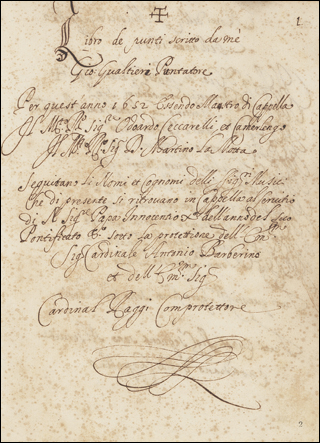 1
Libro de punti scritto da mè
Gio: Gualtieri Puntatore
Per quest'anno 1652 Essendo Maestro di Capella
Il M. R. Sig. Odoardo Ceccarelli et Camerlengo
Il M. R. Sig. D. Martino La Motta
Seguitano li Nomi et Cognomi delli Sig. Musici
che di presente si ritrovano in Capella al servitio
di N. Sig. Papa Innocentio X dell'anno del suo
Pontificato sotto la protettione dell'
Sig. Cardinale Antonio Barberino
et dell' Sig.
Cardinal Raggi Comprotettore
2